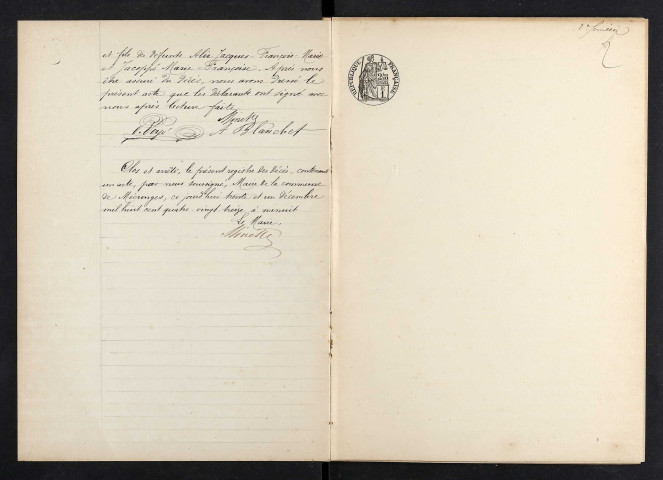 et fils de défunts Alix Jacques François Marie
et Marie Françoise. Après nous
être assuré du décès, nous avons dressé le
présent acte que les déclarants ont signé avec
nous après lecture faite.
Minette
A Blanchet
Clos et arrêté, le présent registre des décès contenant
un acte, par nous soussigné, Maire de la commune
de Méronges, ce jourd'hui trente et un décembre
mil huit cent quatre-vingt treize, à minuit
Le Maire,
Minette
RÉPUBLIQUE FRANÇAISE
2